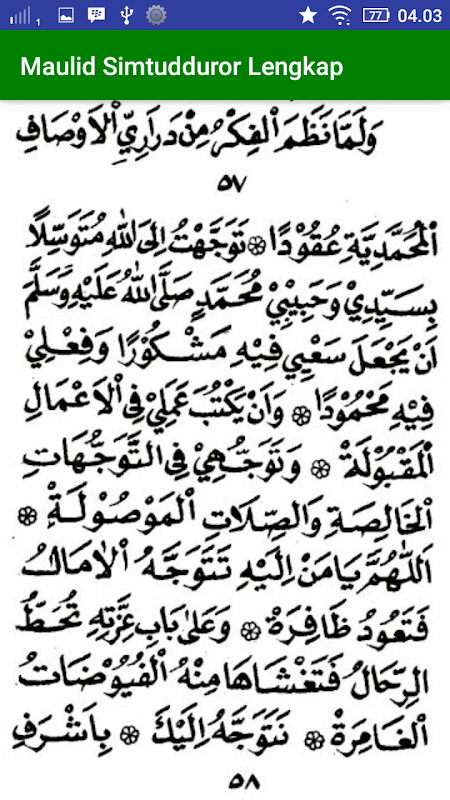 1 77 04.03
Maulid Simtudduror Lengkap
وَلَمَّا نَظَمَ الْفِكْرُ مِنْ دَرَارِيِّ الْاَوْصَافِ
٥٧
الْمُحَمَّدِيَّةِ عُقُوْدًا ۞ تَوَجَّهْتُ اِلَى اللهِ مُتَوَسِّلًا
بِسَيِّدِيْ وَحَبِيْبِيْ مُحَمَّدٍ صَلَّى اللهُ عَلَيْهِ وَسَلَّمَ
اَنْ يَجْعَلَ سَعْيِيْ فِيْهِ مَشْكُوْرًا وَفِعْلِيْ
فِيْهِ مَحْمُوْدًا ۞ وَاَنْ يَكْتُبَ عَمَلِيْ فِى الْاَعْمَالِ
الْمَقْبُوْلَةْ ۞ وَتَوَجُّهِيْ فِى التَّوَجُّهَاتِ
الْخَالِصَةِ وَالصِّلَاتِ الْمَوْصُوْلَةْ ۞
اَللّٰهُمَّ يَا مَنْ اِلَيْهِ تَتَوَجَّهُ الْاٰمَالُ
فَتَعُوْدُ ظَافِرَةْ ۞ وَعَلٰى بَابِ عِزَّتِهِ تُحَطُّ
الرِّحَالُ فَتَغْشَاهَا مِنْهُ الْفُيُوْضَاتُ
الْغَامِرَةْ ۞ نَتَوَجَّهُ اِلَيْكَ ۞ بِاَشْرَفِ
٥٨